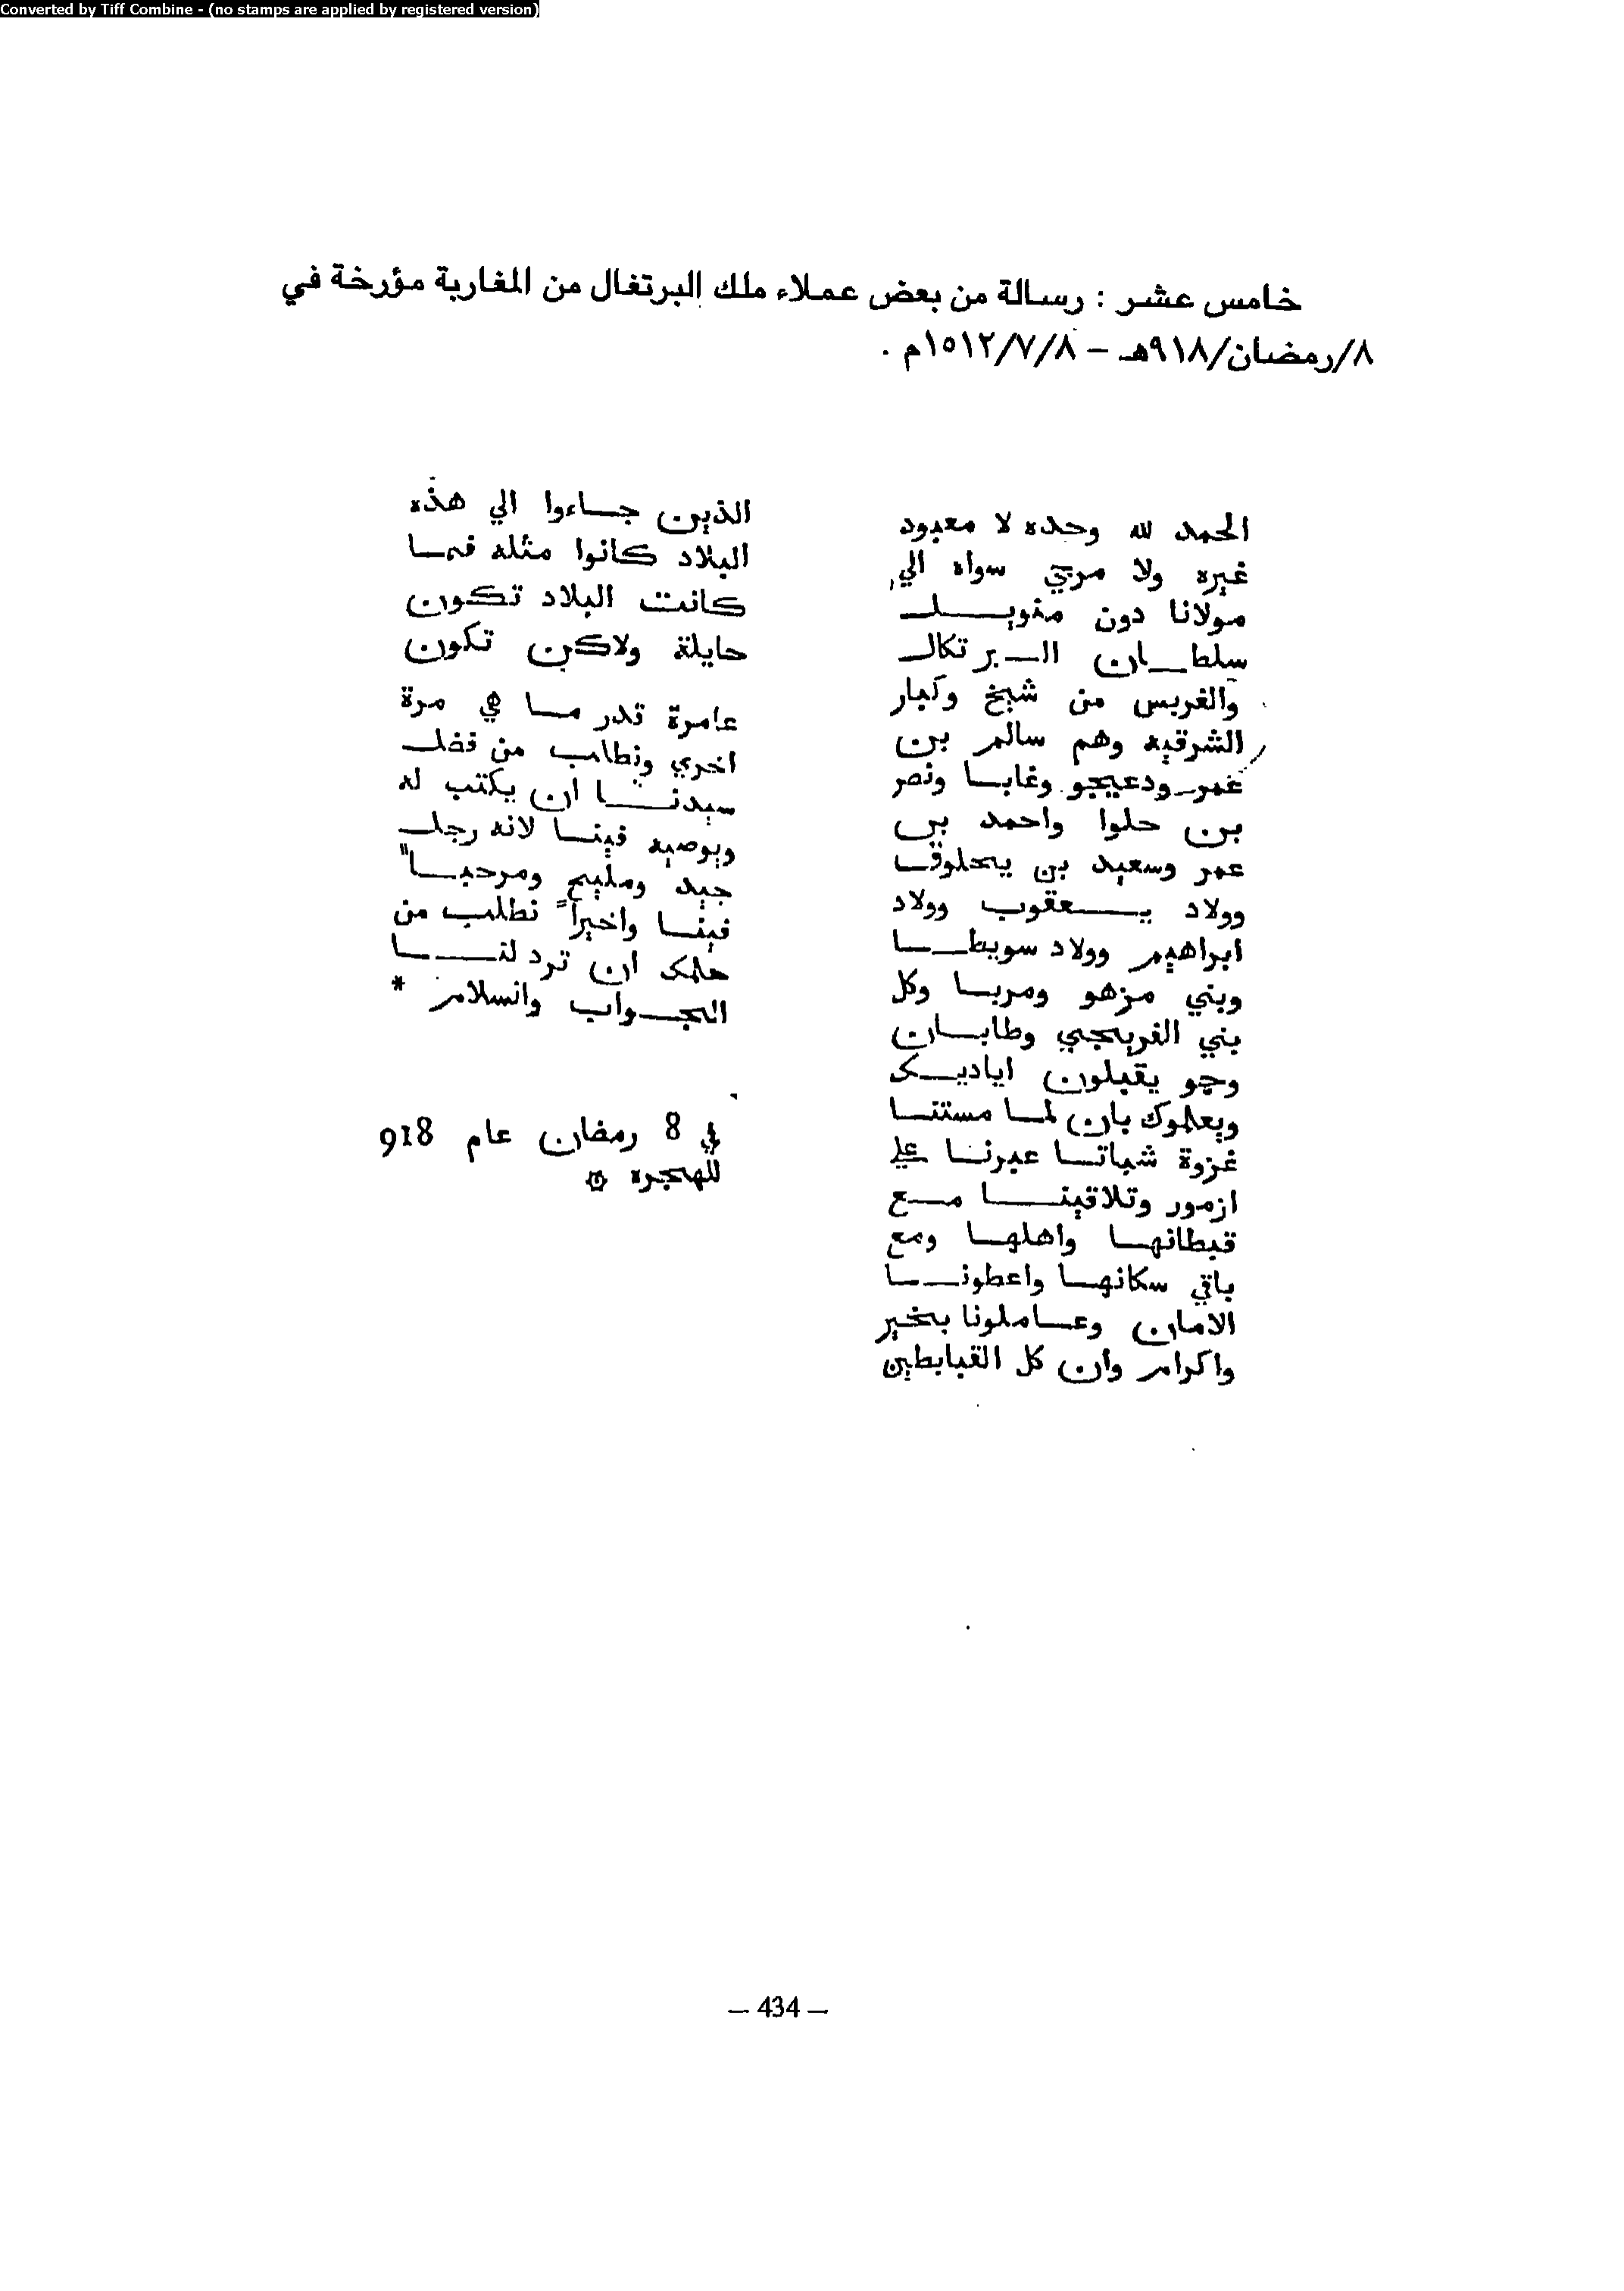 Converted by Tiff Combine - (no stamps are applied by registered version)
خامس عشر : رسالة من بعض عملاء ملك البرتغال من المغاربة مؤرخة في
٨/رمضان/٩١٨هـ – ١٥١٢/٧/٨م .
الحمد لله وحده لا معبود
غيره ولا مرجي سواه الي
مولانا دون منويل
سلطان البرتكال
والغربس من شيخ وكبار
الشرقيه وهم سالم بن
عمر ودعيجو وغابا ونصر
بن حلوا واحمد بن
عمر وسعيد بن يخلوقا
وولاد يعقوب وولاد
ابراهيم وولاد سويطا
وبني مزهو ومربا وكل
بني الفريجي وطابان
وحو يقبلون اياديك
ويعلموك بان لما مستنا
غزوة شباتا عبرنا علي
ازمور وتلاقينا مع
قبطانها واهلها ومع
باقي سكانها واعطونا
الامان وعاملونا بخير
واكرام وان كل القبابطين
الذين جاءوا الي هذه
البلاد كانوا مثله فما
كانت البلاد تكون
حايلة ولاكن تكون
عامرة قدر ما هي مرة
اخري ونطلب من فضل
سيدنا ان يكتب له
ويوصيه فينا لانه رجل
جيد ومليح ومرحبا"
فينا واخيرا" نطلب من
حلمك ان ترد لنا
الجواب والسلام *
في 8 رمضان عام 918
للهجره ۞
– 434 –